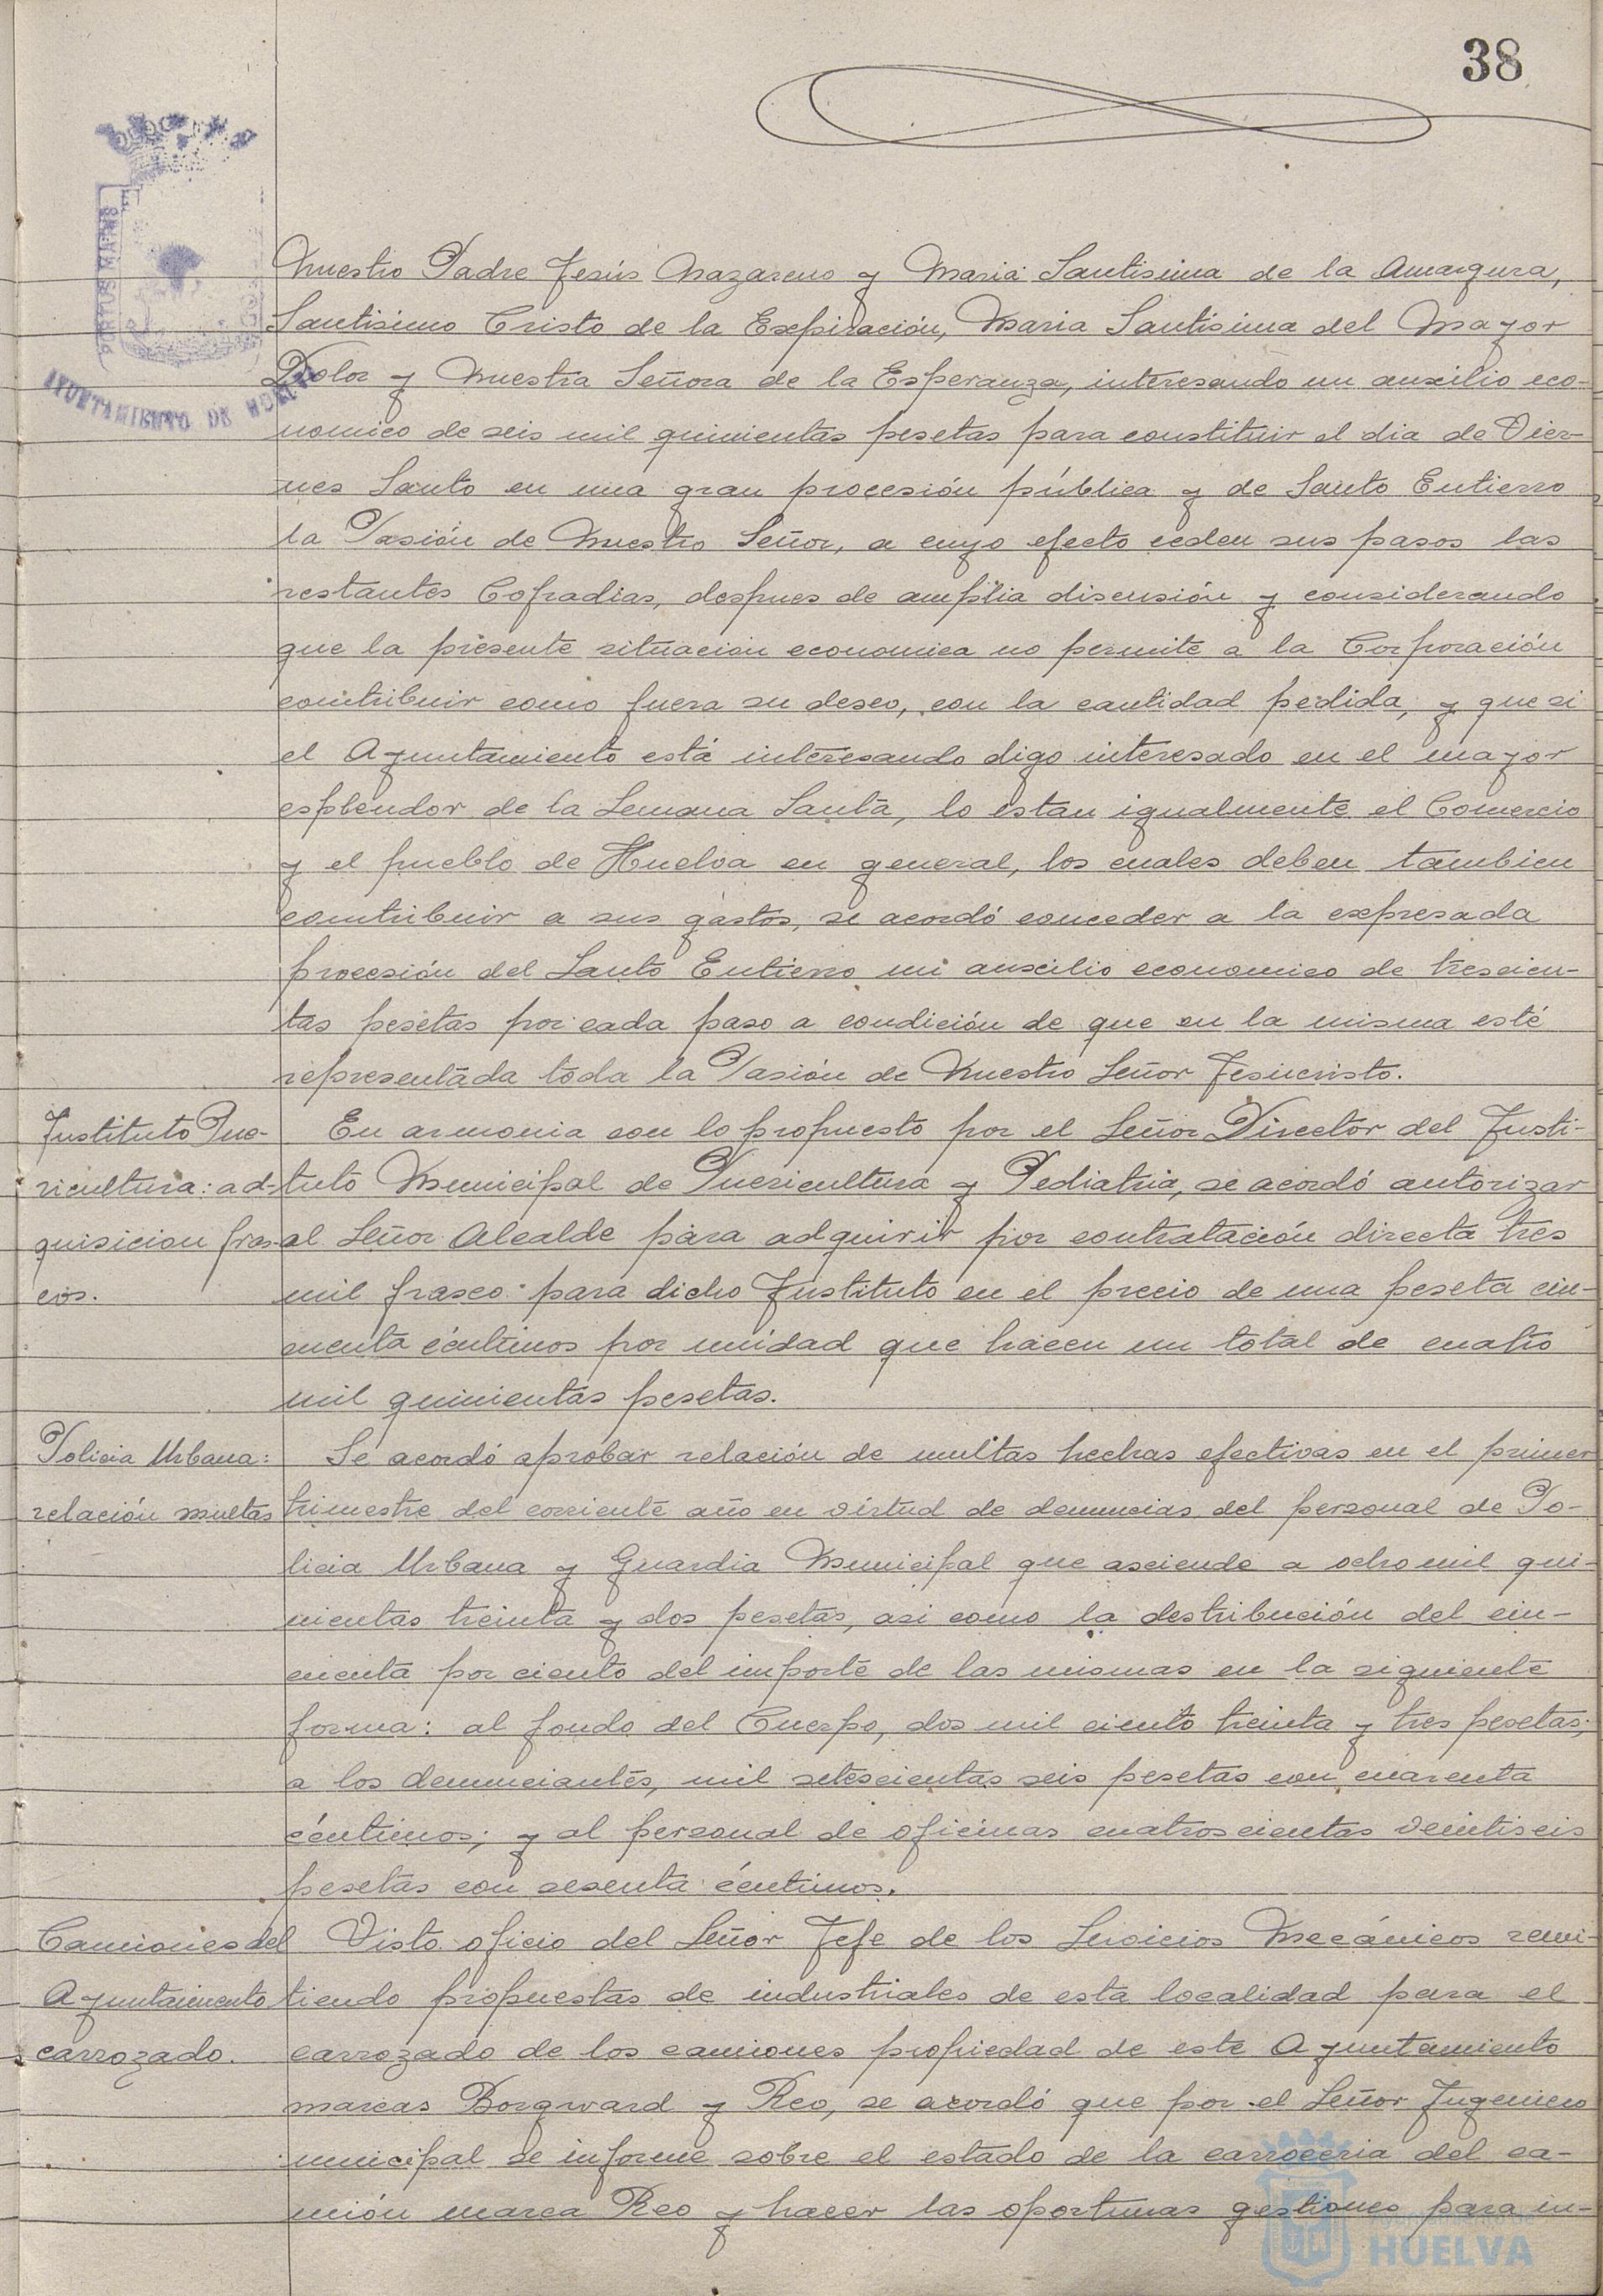 38
PORTUS MARIS ET
AYUNTAMIENTO DE HUELVA
Nuestro Padre Jesús Nazareno y Maria Santisima de la Amargura,
Santisimo Cristo de la Expiración, Maria Santisima del Mayor
Dolor y Nuestra Señora de la Esperanza, interesando un auxilio eco-
nomico de seis mil quinientas pesetas para constituir el dia de Vier-
nes Santo en una gran procesión pública y de Santo Entierro
la Pasión de Nuestro Señor, a cuyo efecto ceden sus pasos las
restantes Cofradias, despues de amplia discusión y considerando
que la presente situacion economica no permite a la Corporación
contribuir como fuera su deseo, con la cantidad pedida, y que si
el Ayuntamiento está interesando digo interesado en el mayor
esplendor de la Semana Santa, lo estan igualmente el Comercio
y el pueblo de Huelva en general, los cuales deben tambien
contribuir a sus gastos, se acordó conceder a la expresada
procesión del Santo Entierro un auxilio economico de trescien-
tas pesetas por cada paso a condición de que en la misma esté
representada toda la Pasión de Nuestro Señor Jesucristo.
Instituto Pue-
ricultura: ad-
quisicion fras-
cos.
En armonia con lo propuesto por el Señor Director del Insti-
tuto Municipal de Puericultura y Pediatria, se acordó autorizar
al Señor Alcalde para adquirir por contratación directa tres
mil frasco para dicho Instituto en el precio de una peseta cin-
cuenta céntimos por unidad que hacen un total de cuatro
mil quinientas pesetas.
Policia Urbana:
relación multas
Se acordó aprobar relación de multas hechas efectivas en el primer
trimestre del corriente año en virtud de denuncias del personal de Po-
licia Urbana y Guardia Municipal que asciende a ocho mil qui-
nientas treinta y dos pesetas, asi como la destribución del cin-
cuenta por ciento del importe de las mismas en la siguiente
forma: al fondo del Cuerpo, dos mil ciento treinta y tres pesetas;
a los denunciantes, mil setescientas seis pesetas con cuarenta
céntimos; y al personal de oficinas cuatroscientas veintiseis
pesetas con sesenta céntimos.
Camiones del
Ayuntamiento
carrozado.
Visto oficio del Señor Jefe de los Servicios Mecánicos remi-
tiendo propuestas de industriales de esta localidad para el
carrozado de los camiones propiedad de este Ayuntamiento
marcas Borgward y Reo, se acordó que por el Señor Ingeniero
municipal se informe sobre el estado de la carroceria del ca-
mión marca Reo y hacer las oportunas gestiones para in-
HUELVA